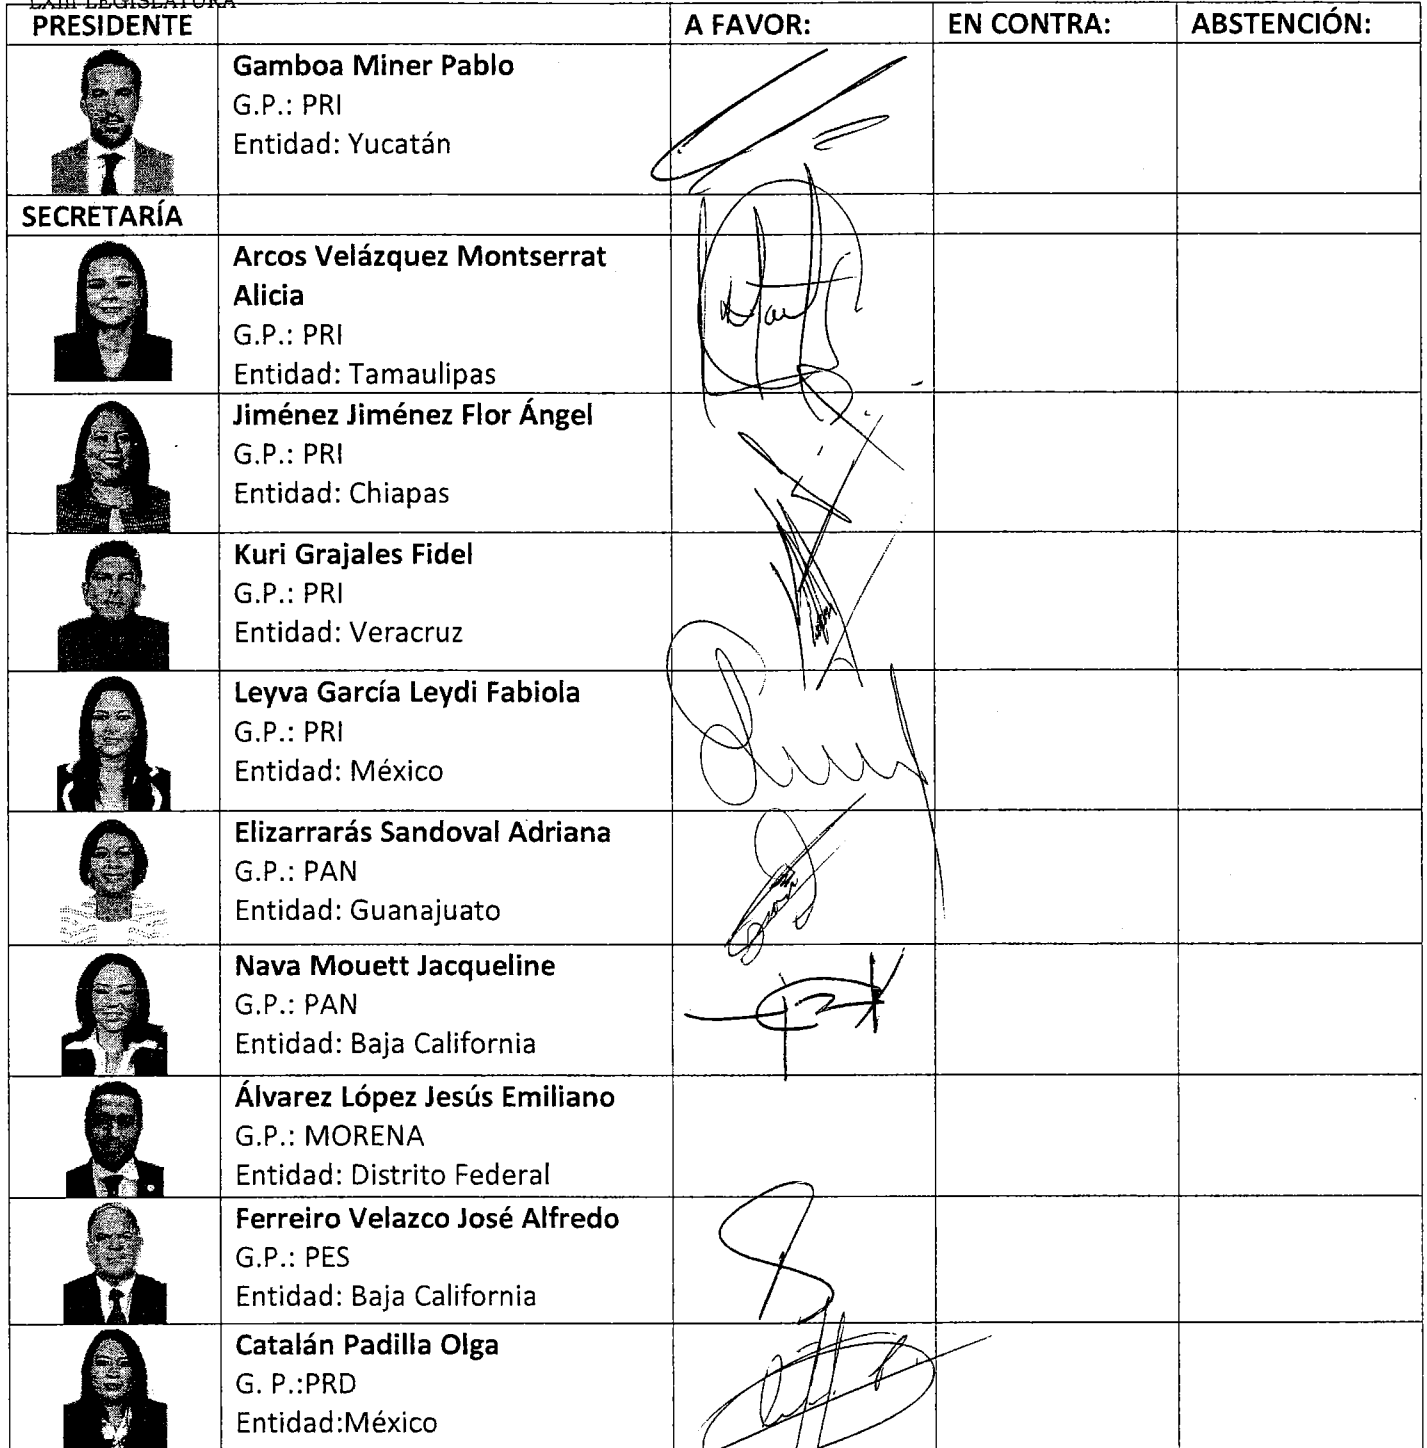 LXIII LEGISLATURA
PRESIDENTE A FAVOR: EN CONTRA: ABSTENCIÓN:
Gamboa Miner Pablo
G.P.: PRI
Entidad: Yucatán
SECRETARÍA
Arcos Velázquez Montserrat
Alicia
G.P.: PRI
Entidad: Tamaulipas
Jiménez Jiménez Flor Ángel
G.P.: PRI
Entidad: Chiapas
Kuri Grajales Fidel
G.P.: PRI
Entidad: Veracruz
Leyva García Leydi Fabiola
G.P.: PRI
Entidad: México
Elizarrarás Sandoval Adriana
G.P.: PAN
Entidad: Guanajuato
Nava Mouett Jacqueline
G.P.: PAN
Entidad: Baja California
Álvarez López Jesús Emiliano
G.P.: MORENA
Entidad: Distrito Federal
Ferreiro Velazco José Alfredo
G.P.: PES
Entidad: Baja California
Catalán Padilla Olga
G. P.:PRD
Entidad:México